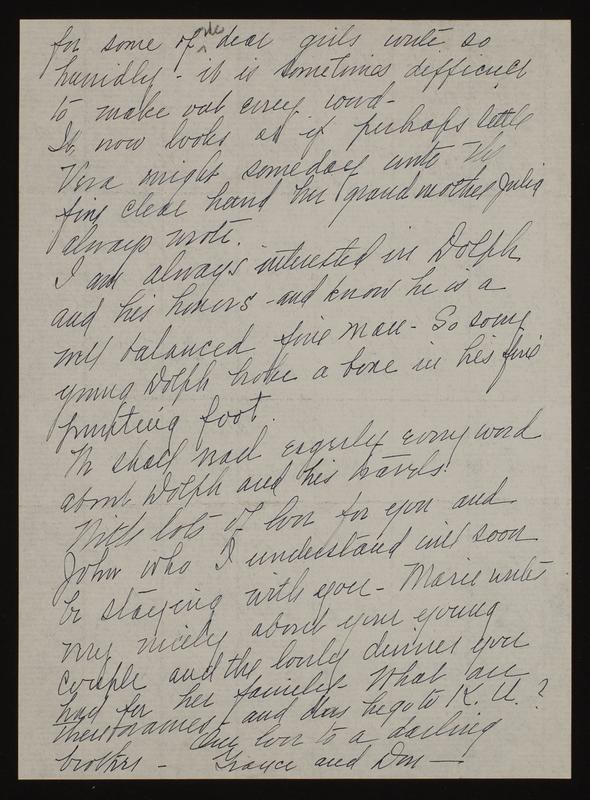 for some of our dear girls write so
hurridly - it is sometimes difficult
to make out every word -
It now looks as if perhaps little
Vera might someday write the
fine clear hand her grandmother Julia
always wrote.
I am always interested in Dolph
and his honors - and know he is a
well balanced fine man - So sorry
young Dolph broke a bone in his fine
punting foot.
We shall read eagerly every word
about Dolph and his travels.
With lots of love for you and
John who I understand will soon
be staying with you - Marie writes
very nicely about your young
couple and the lovely dinner you
had for her family - What are
their names - and does he go to K.U.?
Our love to a darling
brother - Grayce and Don -